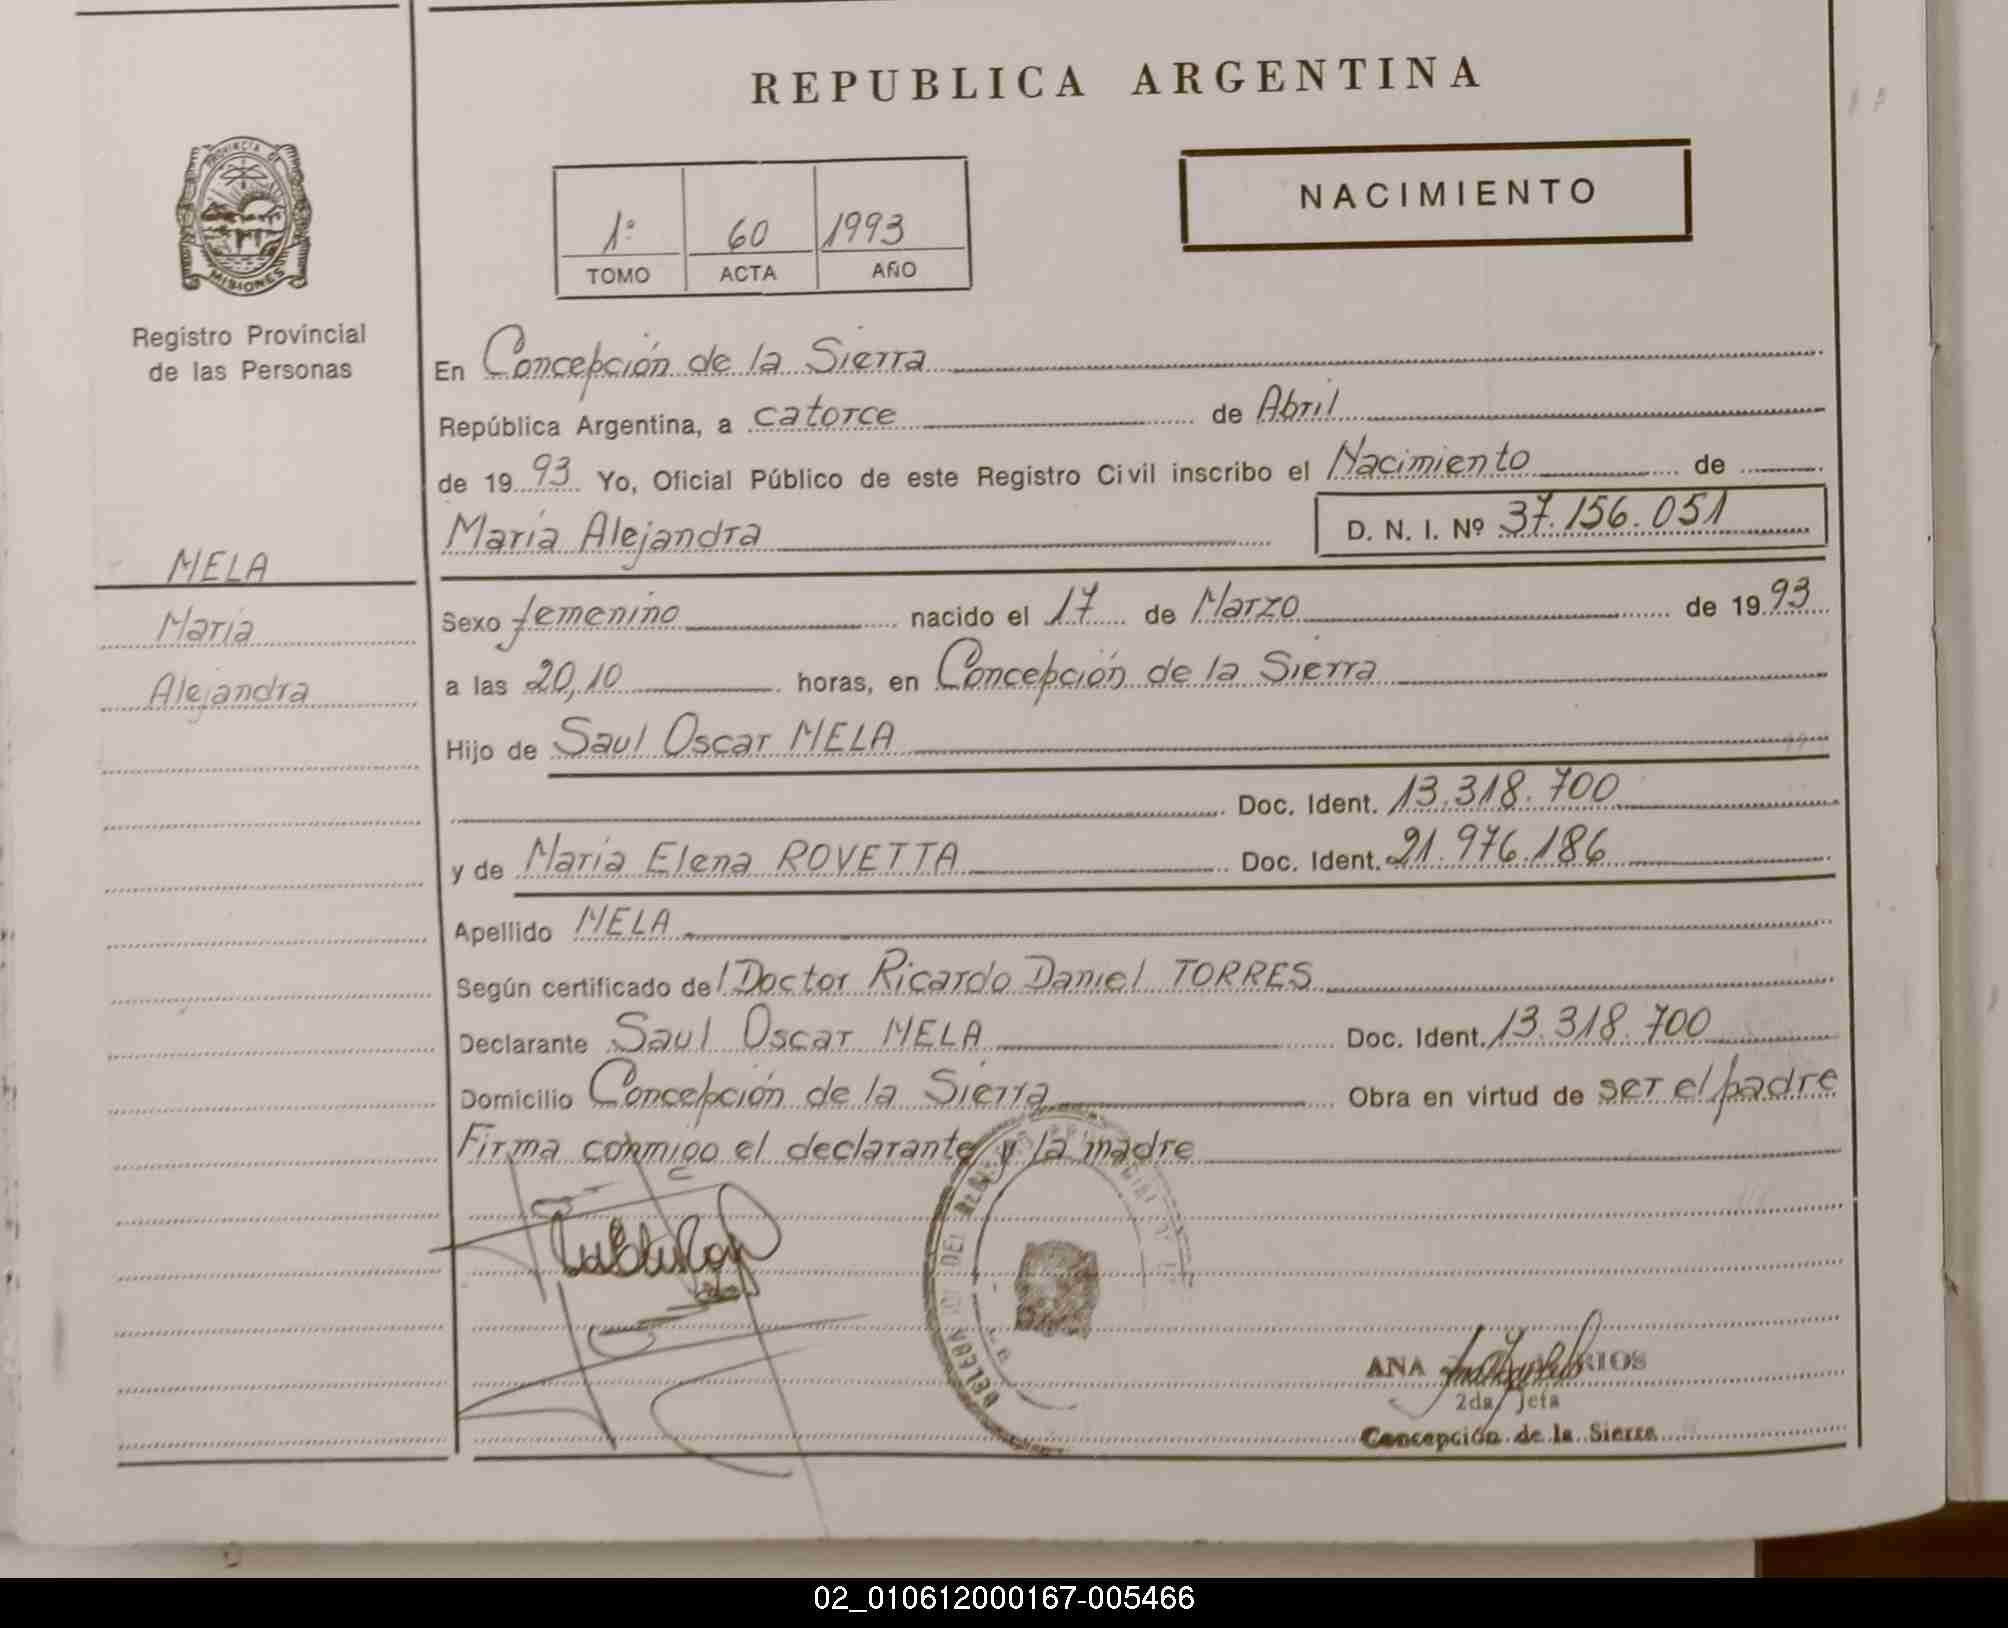 REPUBLICA ARGENTINA
PROVINCIA DE
MISIONES
Registro Provincial
de las Personas
MELA
María
Alejandra
1º 60 1993
TOMO ACTA AÑO
NACIMIENTO
En Concepción de la Sierra
República Argentina, a catorce de Abril
de 1993 Yo, Oficial Público de este Registro Civil inscribo el Nacimiento de
María Alejandra D. N. I. Nº 37.156.051
Sexo femenino nacido el 17 de Marzo de 1993
a las 20,10 horas, en Concepción de la Sierra
Hijo de Saul Oscar MELA
Doc. Ident. 13.318.700
y de María Elena ROVETTA Doc. Ident. 21.976.186
Apellido MELA
Según certificado del Doctor Ricardo Daniel TORRES
Declarante Saul Oscar MELA Doc. Ident. 13.318.700
Domicilio Concepción de la Sierra Obra en virtud de ser el padre
Firma conmigo el declarante y la madre
ANA RIOS
2da Jefa
Concepción de la Sierra
02_010612000167-005466